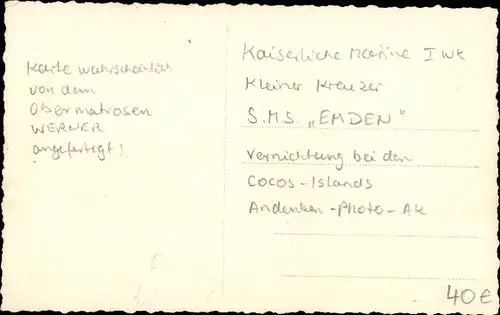 Karte wahrscheinlich
von dem
Obermatrosen
WERNER
angefertigt!
Kaiserliche Marine I WK
Kleiner Kreuzer
S.M.S. „EMDEN"
Vernichtung bei den
Cocos-Islands
Andenken-Photo-AK
40€